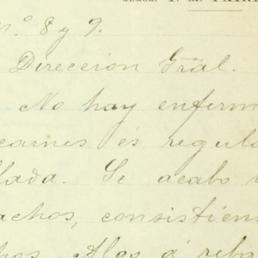 n.º 8 y 9.
Dirección Gral.
No hay enferm
caines és regula
llada. Se acabo
achos, consistien
hos. Alas á rebo